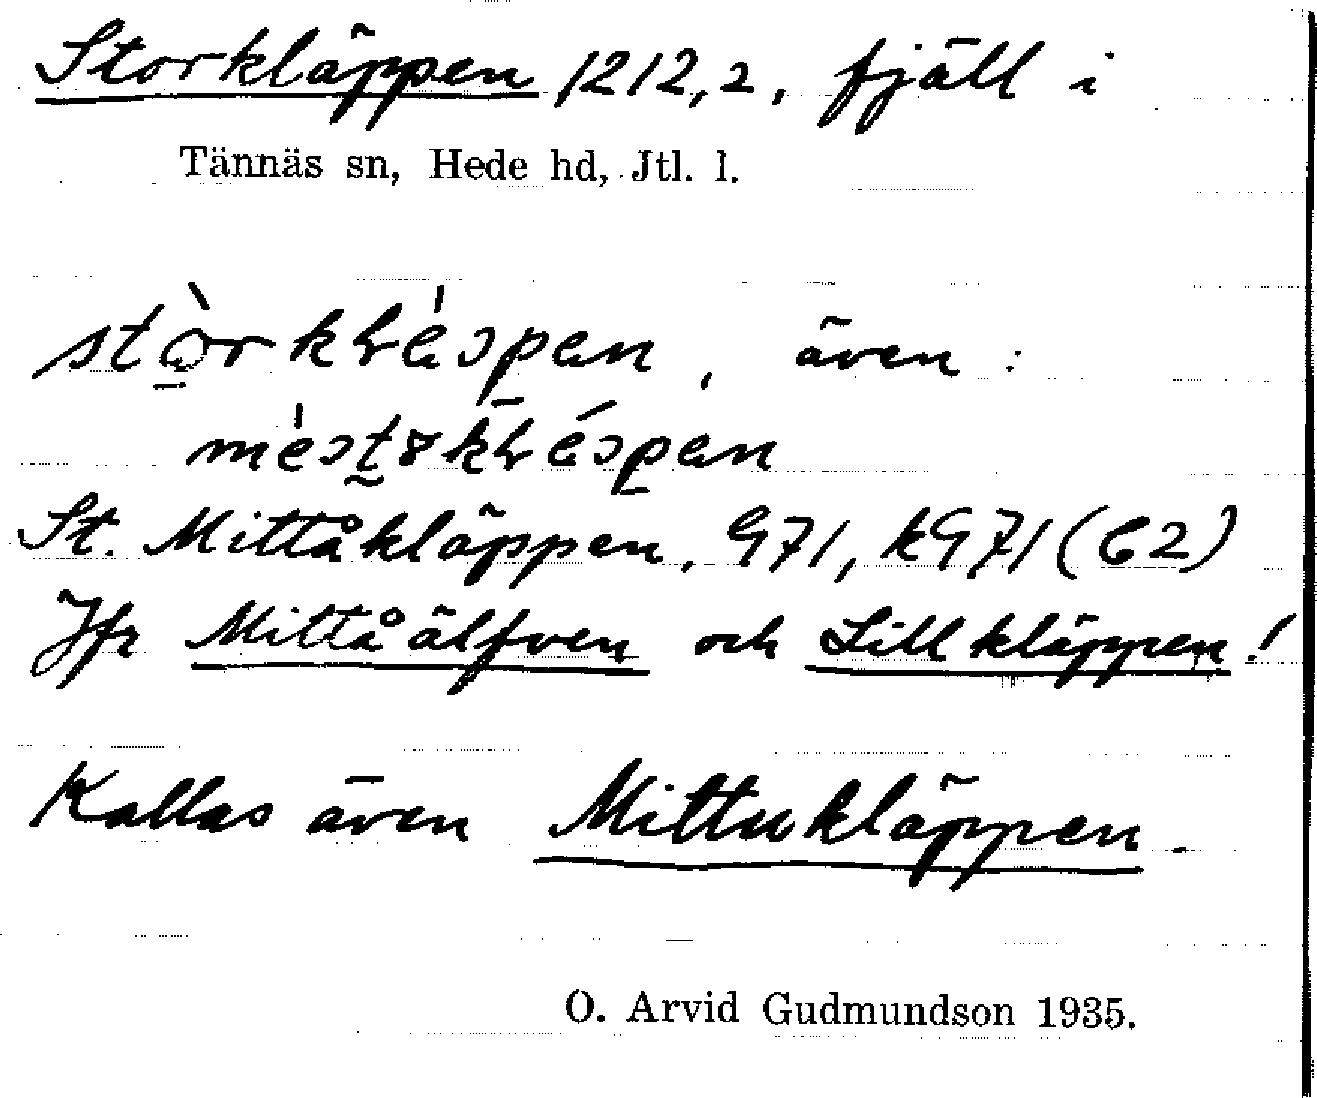 Storkläppen 1212,2, fjäll i
Tännäs sn, Hede hd, Jtl. l.
även :
St. Mittåkläppen, G71, kG71 (C2)
Jfr Mittåälfven och Lillkläppen!
Kallas även Mittukläppen.
O. Arvid Gudmundson 1935.